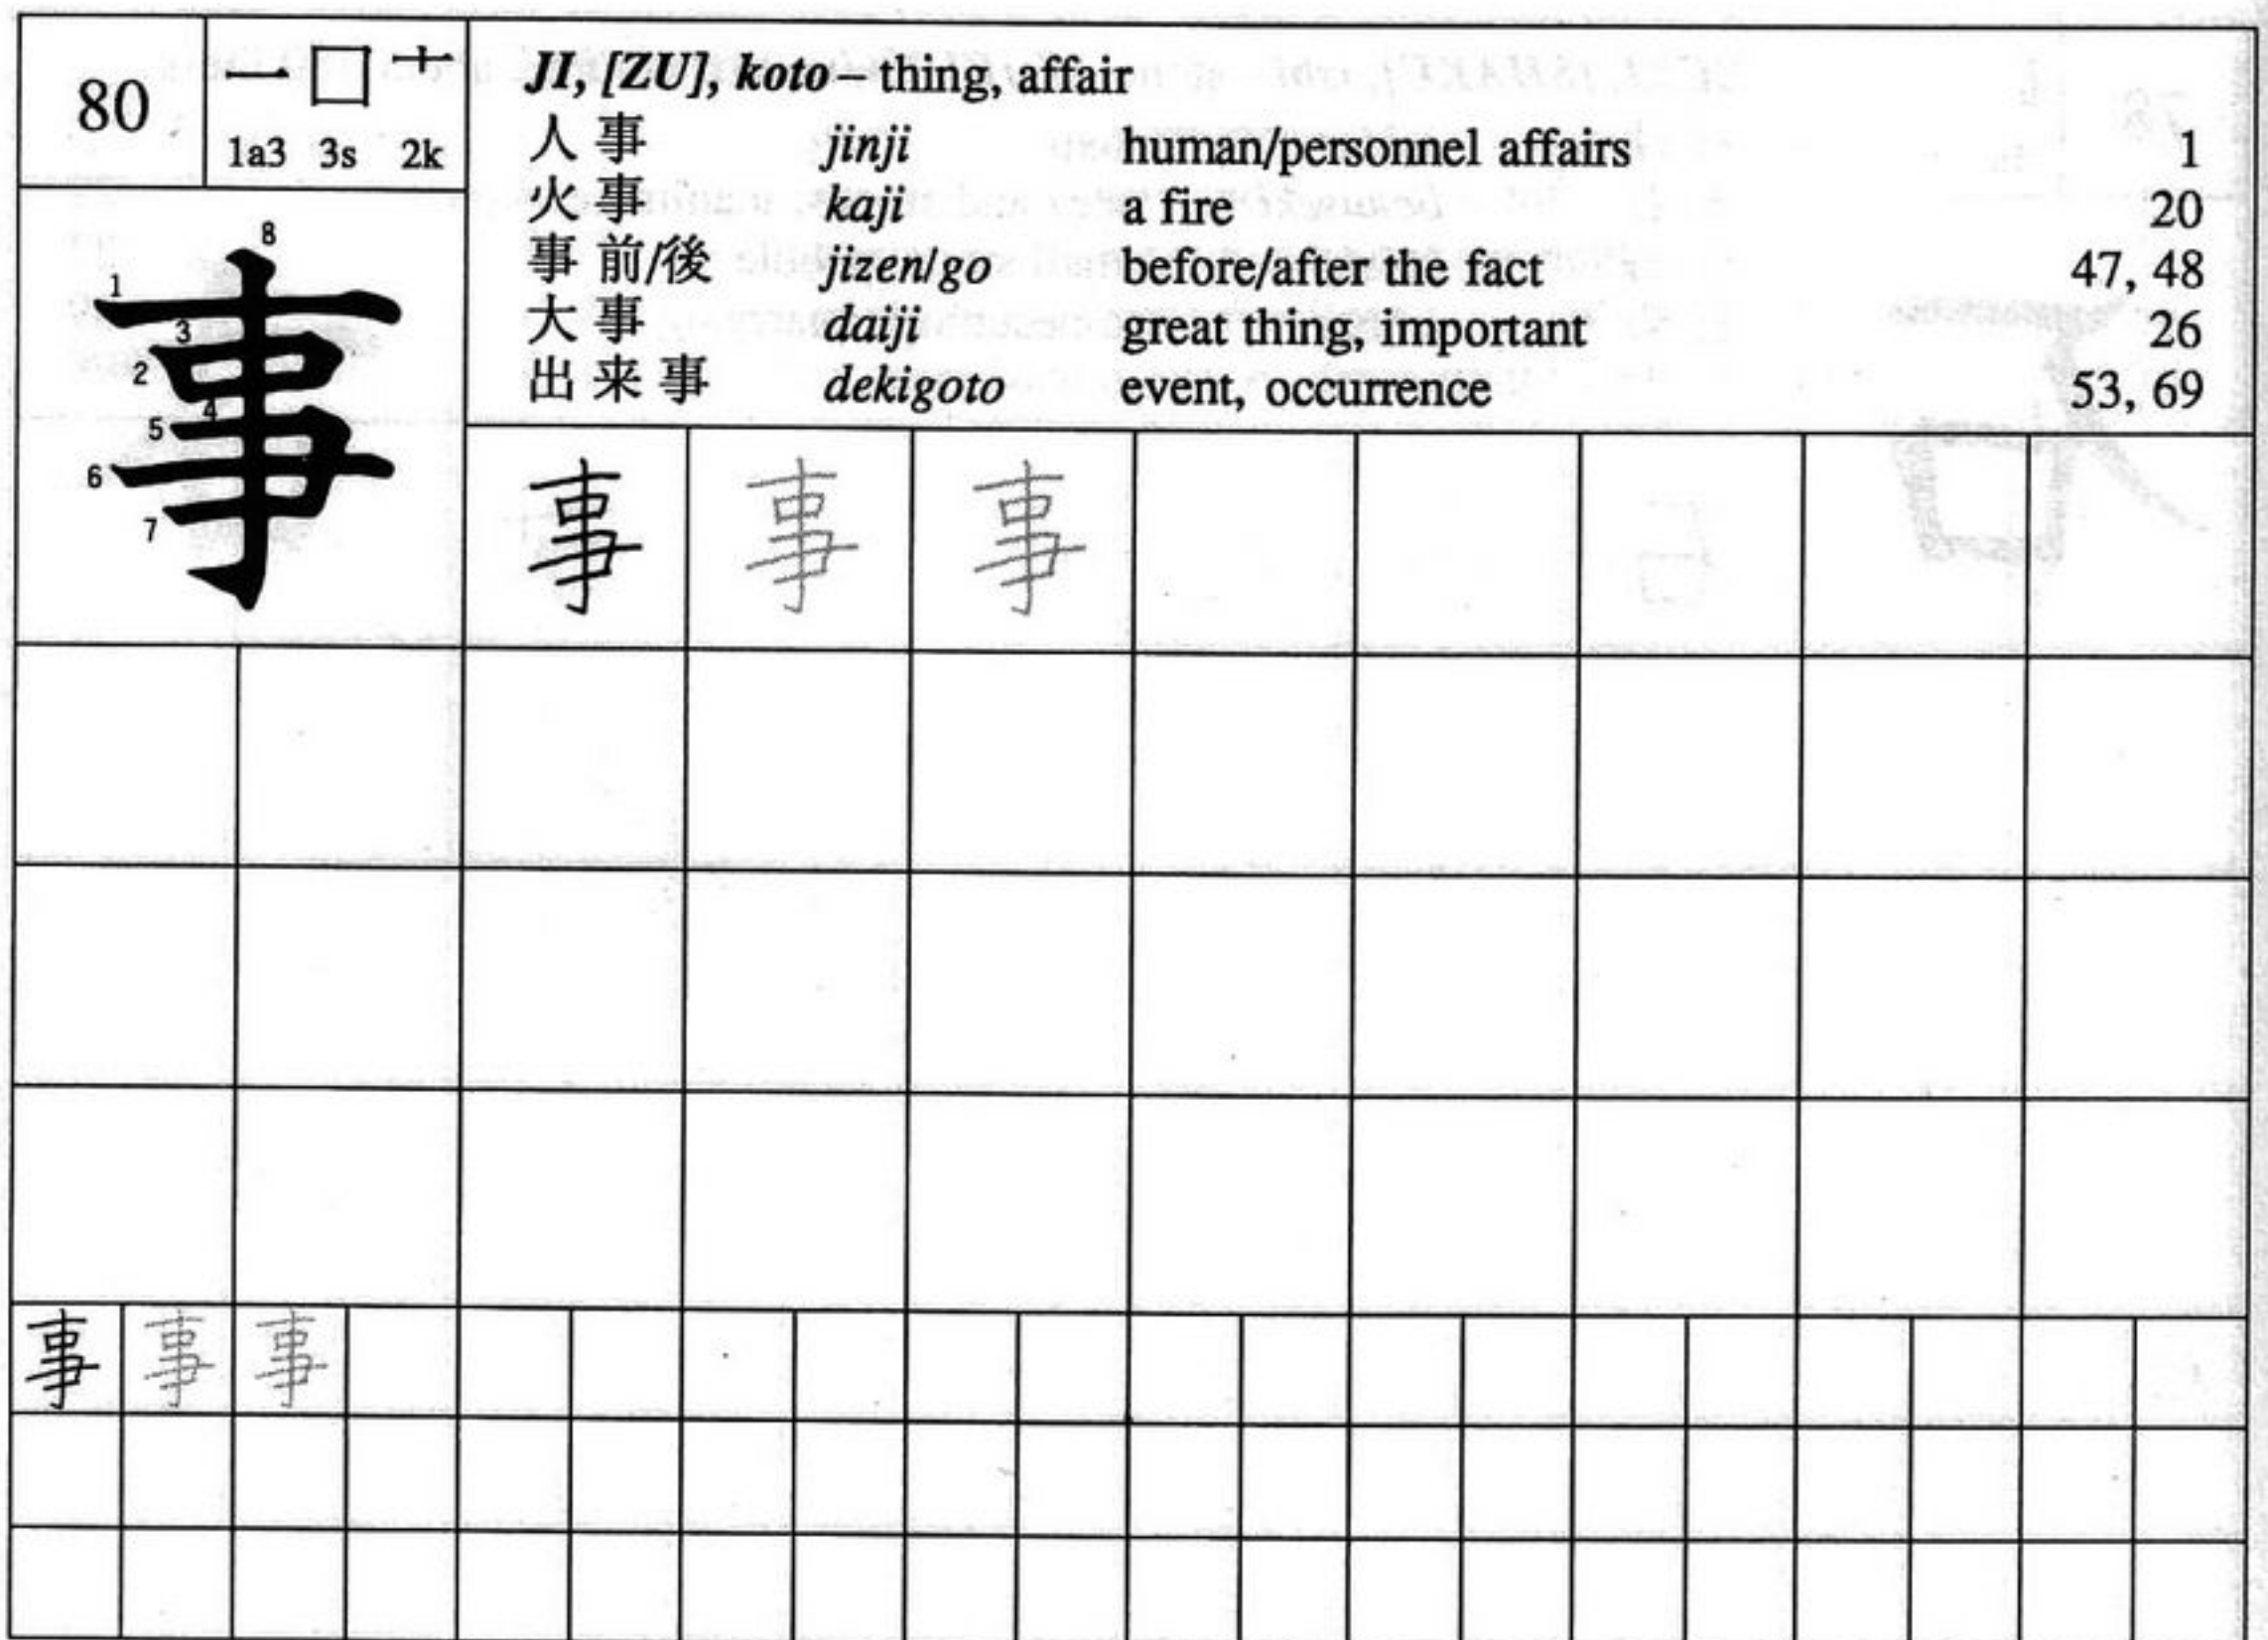 80
一 口 亠
1a3 3s 2k
JI, [ZU], koto – thing, affair
人事 jinji human/personnel affairs 1
火事 kaji a fire 20
事前/後 jizen/go before/after the fact 47, 48
大事 daiji great thing, important 26
出来事 dekigoto event, occurrence 53, 69
事
1
2
3
4
5
6
7
8
事 事 事
事 事 事